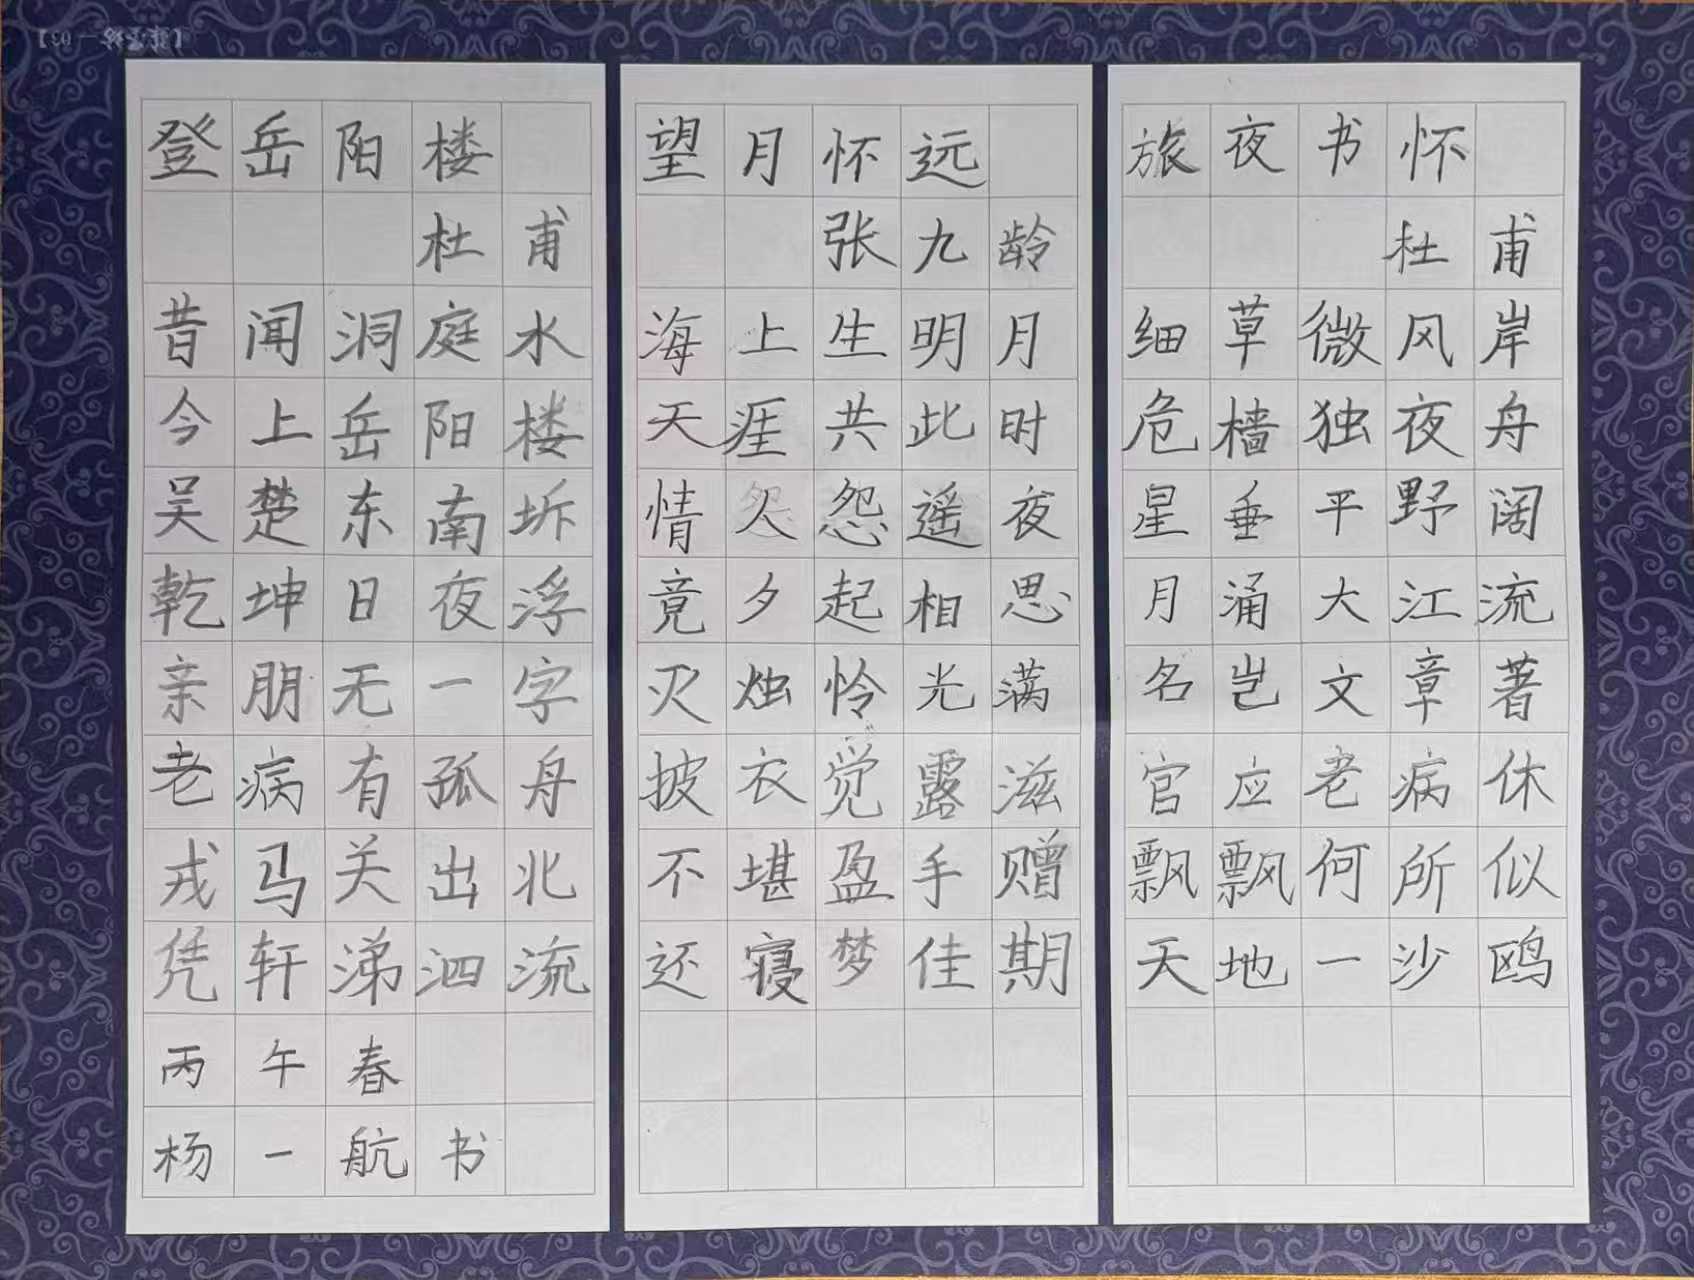 登岳阳楼
杜甫
昔闻洞庭水
今上岳阳楼
吴楚东南坼
乾坤日夜浮
亲朋无一字
老病有孤舟
戎马关出北
凭轩涕泗流
丙午春
杨一航书
望月怀远
张九龄
海上生明月
天涯共此时
情人怨遥夜
竟夕起相思
灭烛怜光满
披衣觉露滋
不堪盈手赠
还寝梦佳期
旅夜书怀
杜甫
细草微风岸
危樯独夜舟
星垂平野阔
月涌大江流
名岂文章著
官应老病休
飘飘何所似
天地一沙鸥